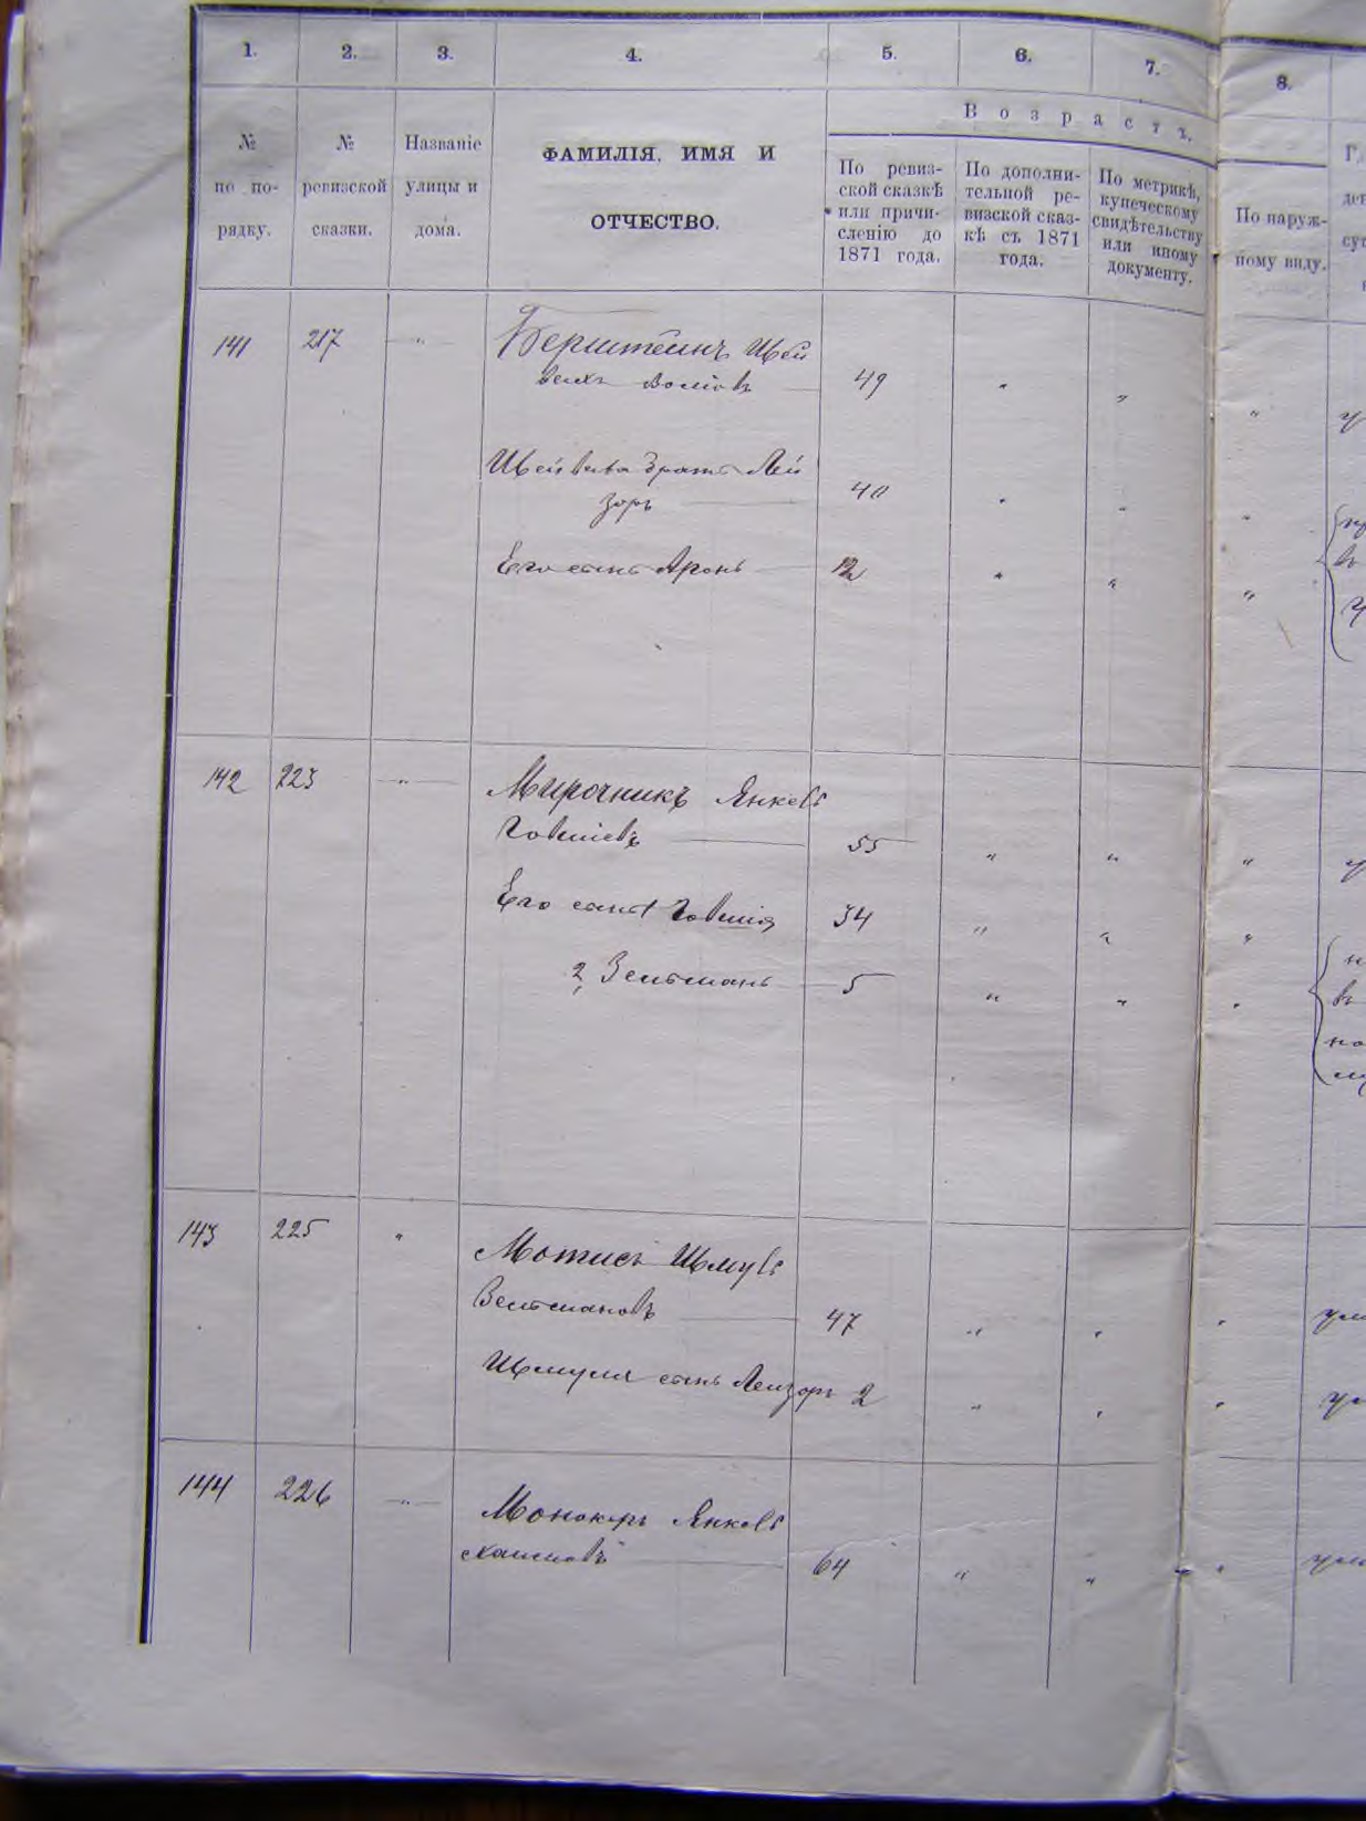 1. 2. 3. 4. 5. 6. 7. 8.
№ по по-рядку.
№ ревизской сказки.
Названіе улицы и дома.
ФАМИЛІЯ, ИМЯ И
ОТЧЕСТВО.
Возрастъ.
По ревиз-
ской сказкѣ
или причи-
сленію до
1871 года.
По дополни-
тельной ре-
визской сказ-
кѣ съ 1871
года.
По метрикѣ,
купеческому
свидѣтельству
или иному
документу.
По наруж-
ному виду.
141 217 " Берштейнъ Шей
вель 49 " " "
братъ Лей
зоръ 40 " " "
Его сынъ Аронъ 12 " " "
142 223 " Мирочникъ Янкель
Говшіевъ 55 " " "
Его сынъ Говшія 34 " " "
2, Зельманъ 5 " " "
143 225 " Мотисъ Шмуль
Зельмановъ 47 " " "
Шмуля сынъ Лейзоръ 2 " " "
144 226 " Монокеръ Янкель
Хаимовъ 64 " " "